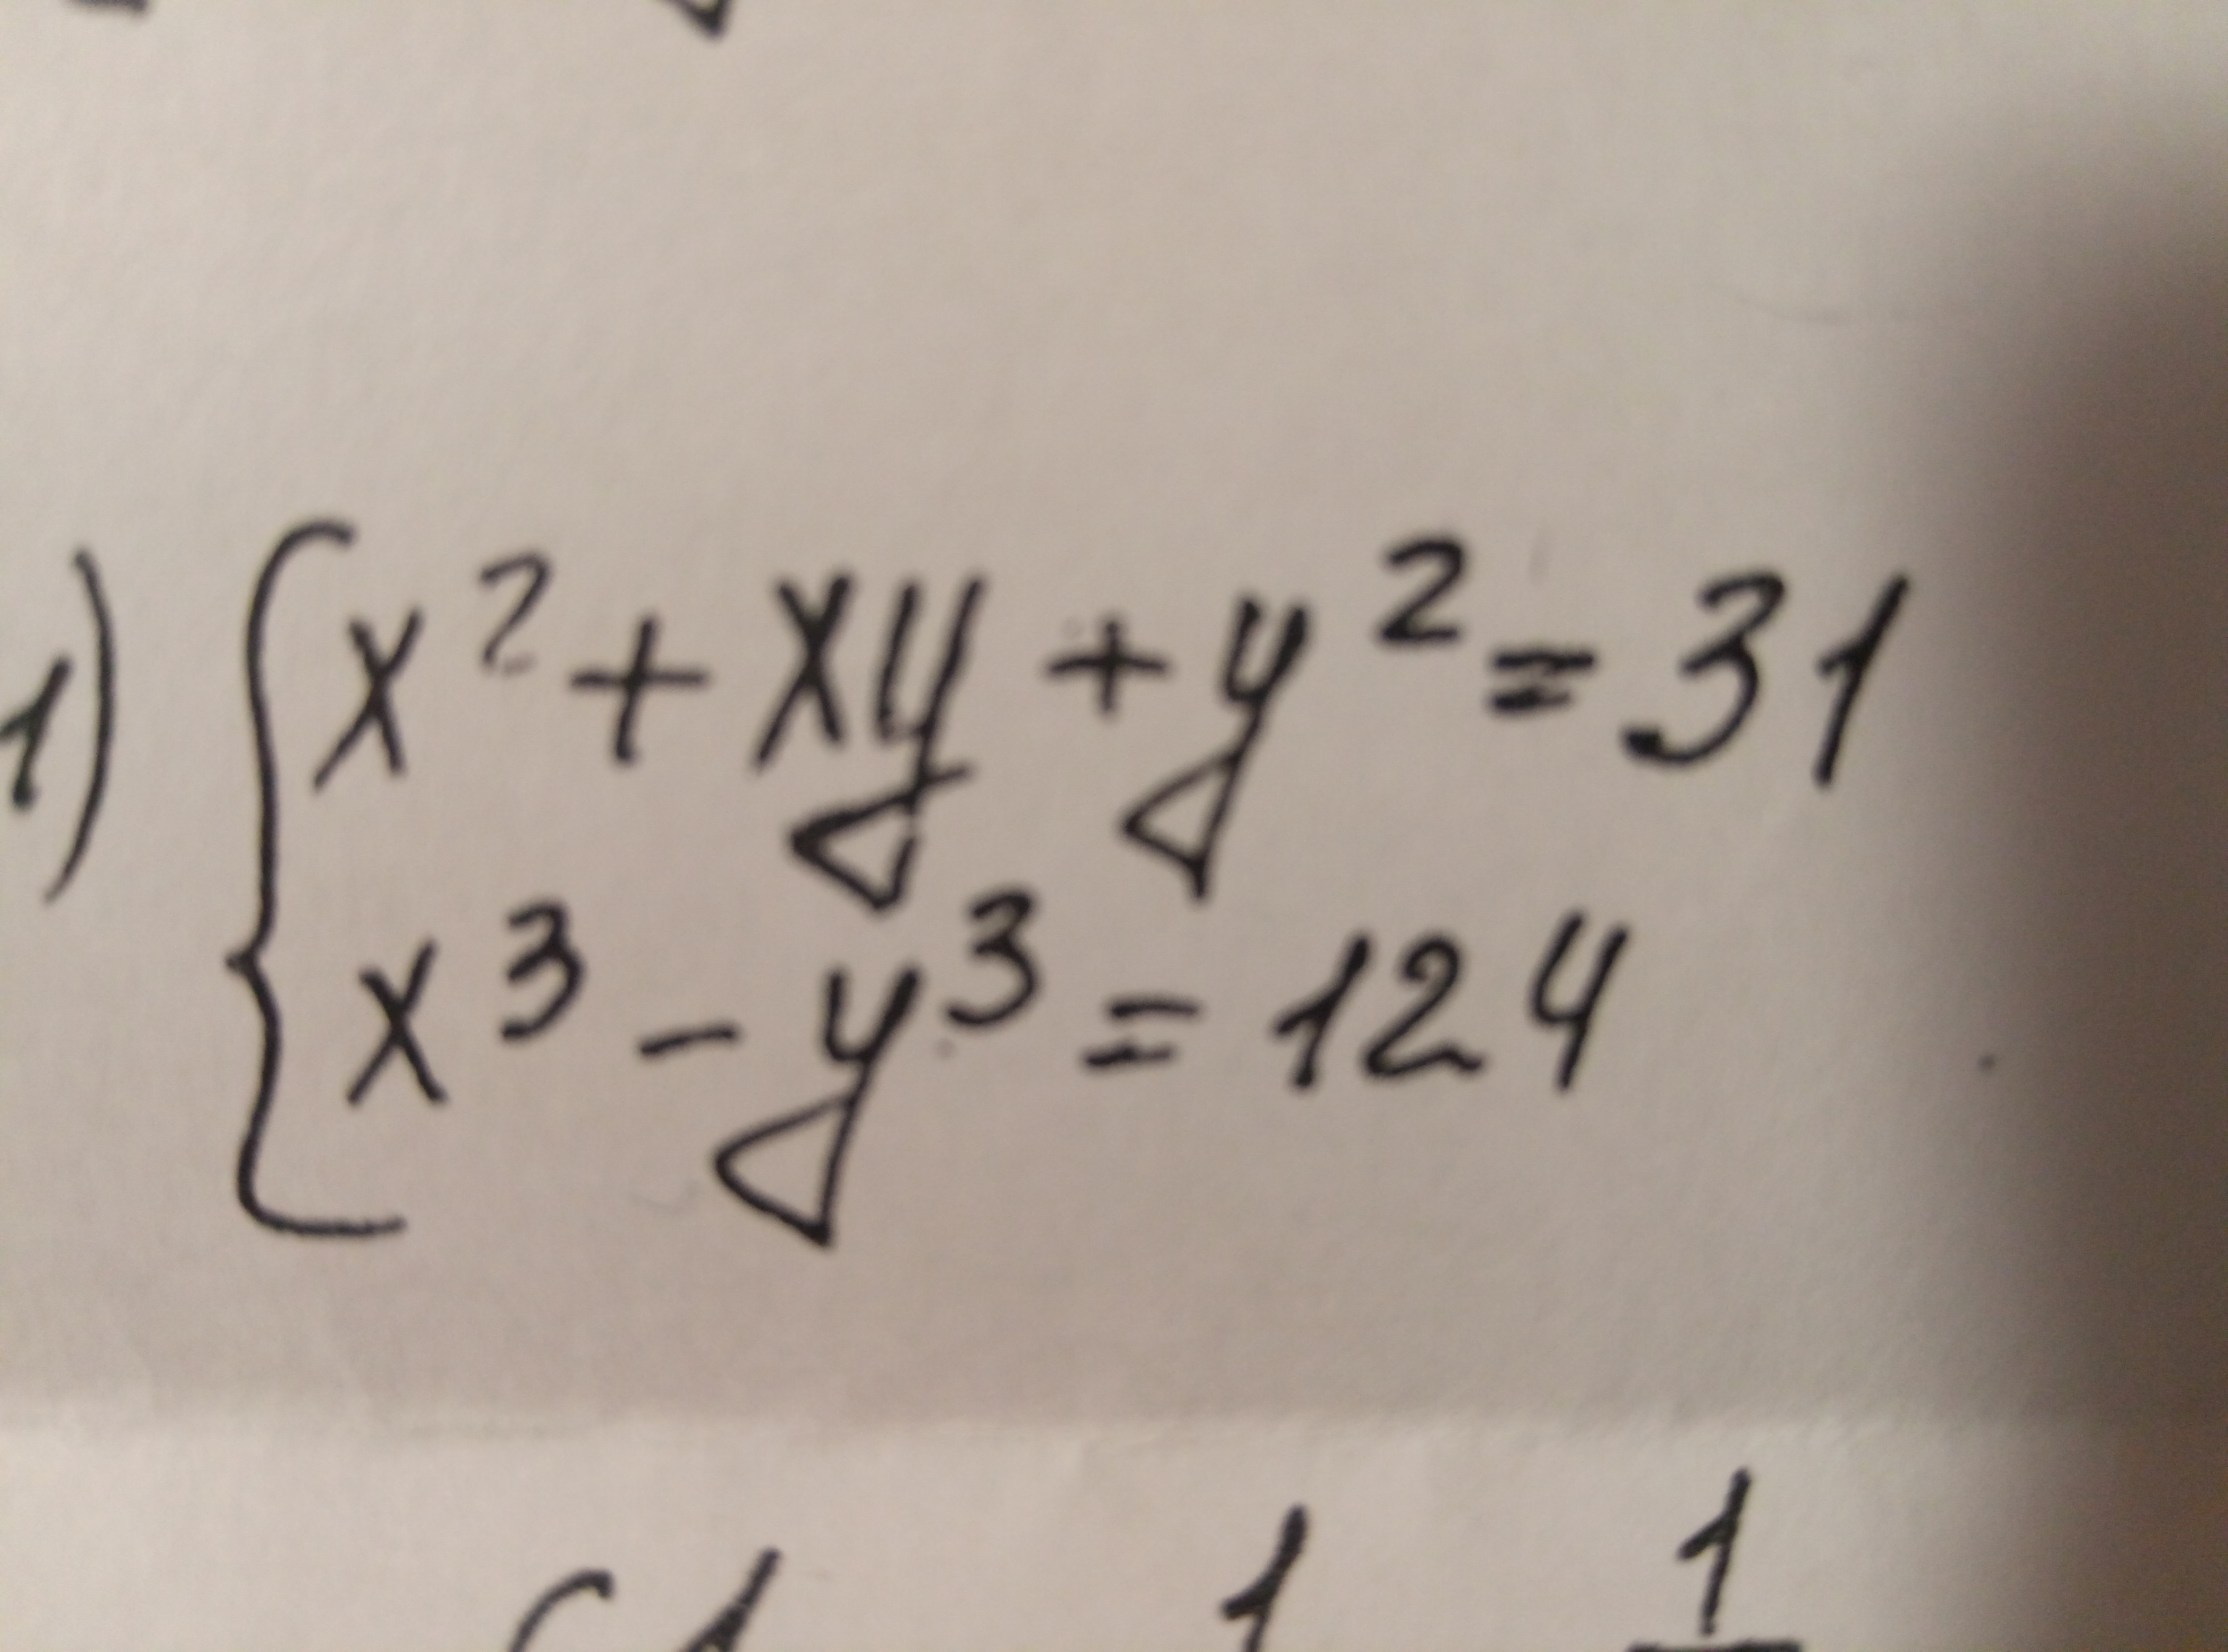 1) { x² + xy + y² = 31
x³ - y³ = 124